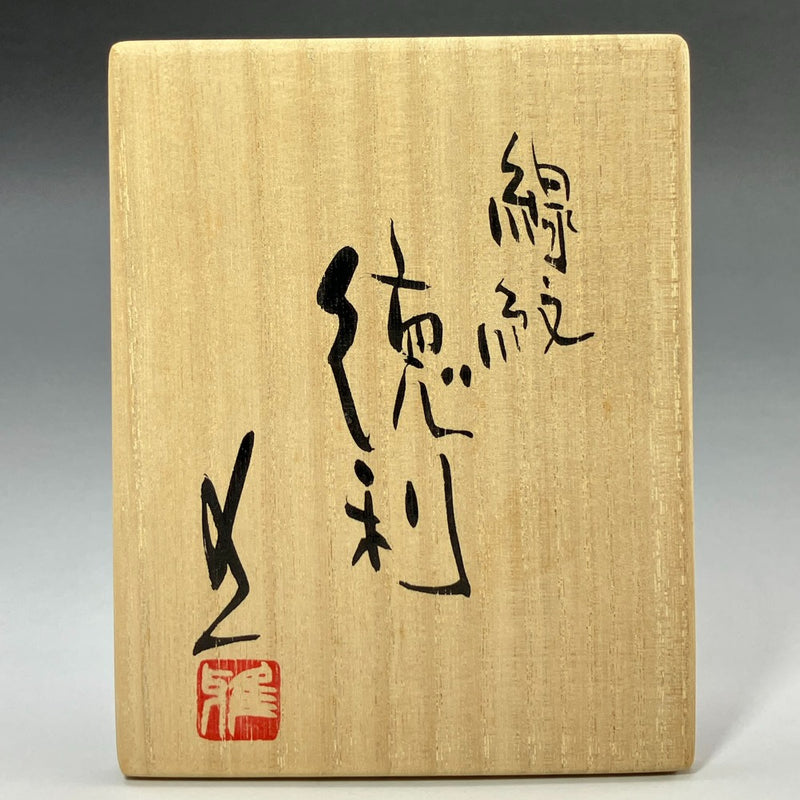 線紋
徳利
雅